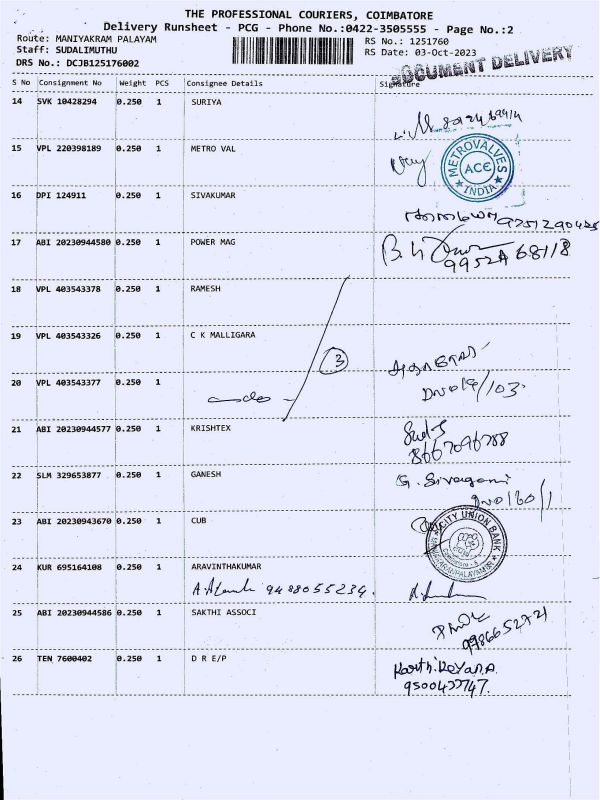 THE PROFESSIONAL COURIERS, COIMBATORE
Delivery Runsheet - PCG - Phone No.:0422-3505555 - Page No.:2
Route: MANIYAKRAM PALAYAM
Staff: SUDALIMUTHU
DRS No.: DCJB125176002
RS No.: 1251760
RS Date: 03-Oct-2023
DOCUMENT DELIVERY
S No Consignment No Weight PCS Consignee Details Signature
14 SVK 10428294 0.250 1 SURIYA
15 VPL 220398189 0.250 1 METRO VAL
METROVALVES ACE INDIA
16 DPI 124911 0.250 1 SIVAKUMAR
17 ABI 20230944580 0.250 1 POWER MAG
9952A 68118
18 VPL 403543378 0.250 1 RAMESH
19 VPL 403543326 0.250 1 C K MALLIGARA
3
20 VPL 403543377 0.250 1
DNO 19/103
21 ABI 20230944577 0.250 1 KRISHTEX
8667096788
22 SLM 329653877 0.250 1 GANESH
G. Sivagami
23 ABI 20230943670 0.250 1 CUB
CITY UNION BANK
24 KUR 695164108 0.250 1 ARAVINTHAKUMAR
9488055234.
25 ABI 20230944586 0.250 1 SAKTHI ASSOCI
9986652721
26 TEN 7600402 0.250 1 D R E/P
Karthikeyan.A
9500437747.